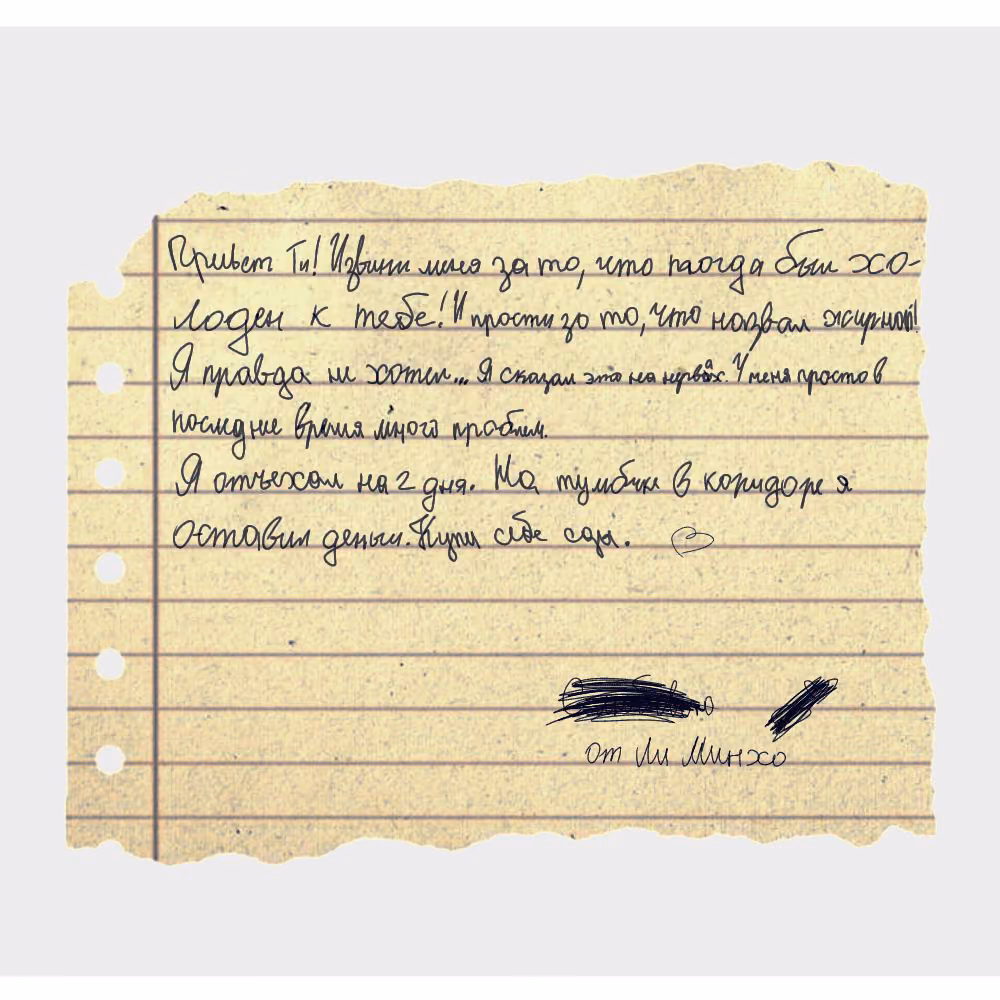 Привет Ти! Извини меня за то, что тогда был хо-
лоден к тебе! И прости за то, что назвал жирной!
Я правда не хотел... Я сказал это на нервах. У меня просто в
последние время много проблем.
Я отъехал на 2 дня. На тумбчке в коридоре я
оставил деньги. Купи себе еды. ♡
от Ли Минхо